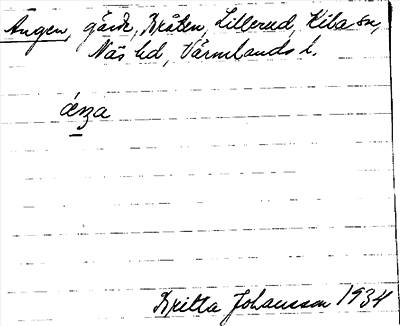 Ängen, gärde, Bråten, Lillerud, Kila sn,
Näs hd, Värmlands l.
Britta Johansson 1934